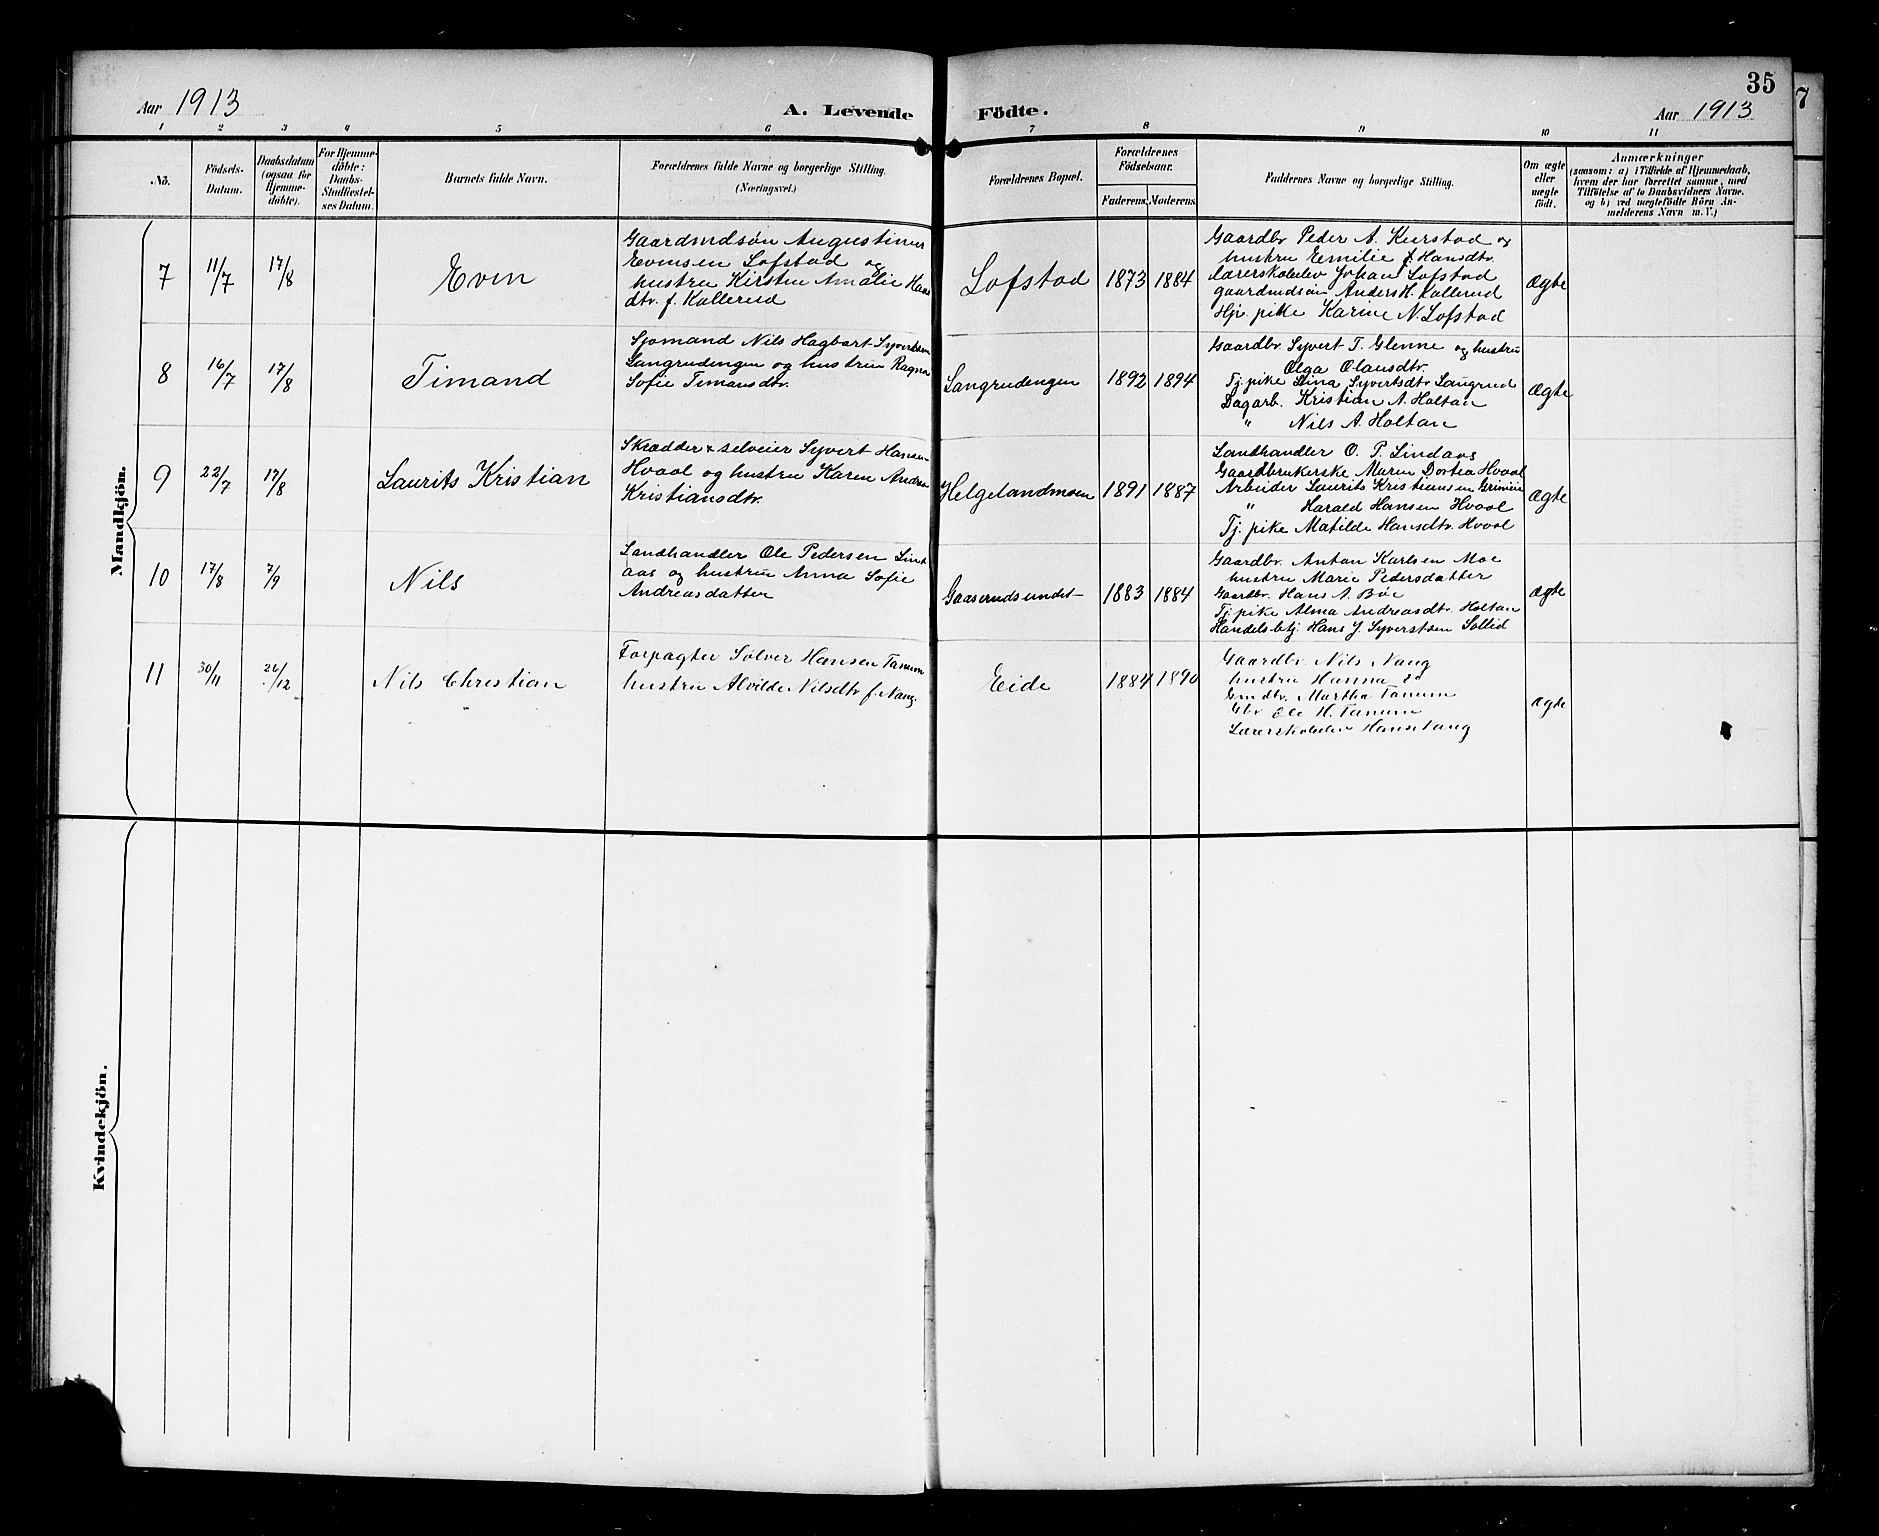 35
Aar 1913
A. Levende Födte.
Aar 1913
7
1 2 3 4 5 6 7 8 9 10 11
No.
Födsels-
Datum.
Daabsdatum
(ogsaa for
Hjemme-
döbte).
For Hjemme-
döbte:
Daabs-
Stadfæstel-
ses Datum.
Barnets fulde Navn.
Forældrenes fulde Navne og borgerlige Stilling.
(Næringsvei.)
Forældrenes Bopæl.
Forældrenes
Födselsaar.
Faderens. Moderens.
Faddernes Navne og borgerlige Stilling.
Om ægte
eller
uægte
födt.
Anmærkninger
(saasom: a) i Tilfælde af Hjemmedaab,
hvem der har forrettet samme, med
Tilföielse af to Daabsvidners Navne.
og b) ved uægtefödte Börn An-
melderens Navn m. V.)
Mandkjön.
7 11/7 17/8 Evin
Gaardmdsøn Augustinus
Evensen Lofstad og
hustru Kirsten Amalie Hans
dtr. f. Kallerud
Lofstad 1873 1884
Gaardbr Peder A. Kurstad og
hustru Emilie f Hansdtr.
Lærerskoleelev Johan Lofstad
gaardmdsøn Anders H. Kallerud
Hjv. pike Karine N. Lofstad
Ægte
8 16/7 17/8 Timand
Sjømand Nils Hagbart Syvertsen
Langrudengen og hustru Ragna
Sofie Timansdtr.
Langrudengen 1892 1894
Gaardbr Syvert T. Glenne og hustru
Olga Olausdtr.
Tj. pike Lina Syvertsdtr Langrud
Dagarb. Kristian A. Holtan
" Nils A. Holtan
Ægte
9 22/7 17/8 Laurits Kristian
Skrædder & selveier Syvert Hansen
Hvaal og hustru Karen Andrea
Kristiansdtr.
Helgelandmoen 1891 1887
Landhandler O. P. Lindaas
Gaardbrukerske Maren Dortea Hvaal
Arbeider Laurits Kristiansen
" Harald Hansen Hvaal
Tj. pike Matilde Hansdtr. Hvaal
Ægte
10 17/8 7/9 Nils
Landhandler Ole Pedersen Lind
aas og hustru Anna Sofie
Andreasdatter
Gaaserudsundet 1883 1884
Gaardbr. Anton Karlsen Moe
hustru Marie Pedersdatter
Gaardbr. Hans A. Bøe
Tj. pike Alma Andreasdtr. Holtan
Handelsbtj. Hans J. Syvertsen Sollid
Ægte
11 30/11 26/12 Nils Christian
Forpagter Sølver Hansen Tanum
hustru Alvilde Nilsdtr f. Nang.
Eide 1884 1890
Gaardbr. Nils Nang
hustru Hanna do
Gmdtr. Martha Tanum
Gbr Ole H. Tanum
Lærerskoleelev Hans Nang
Ægte
Kvindekjön.